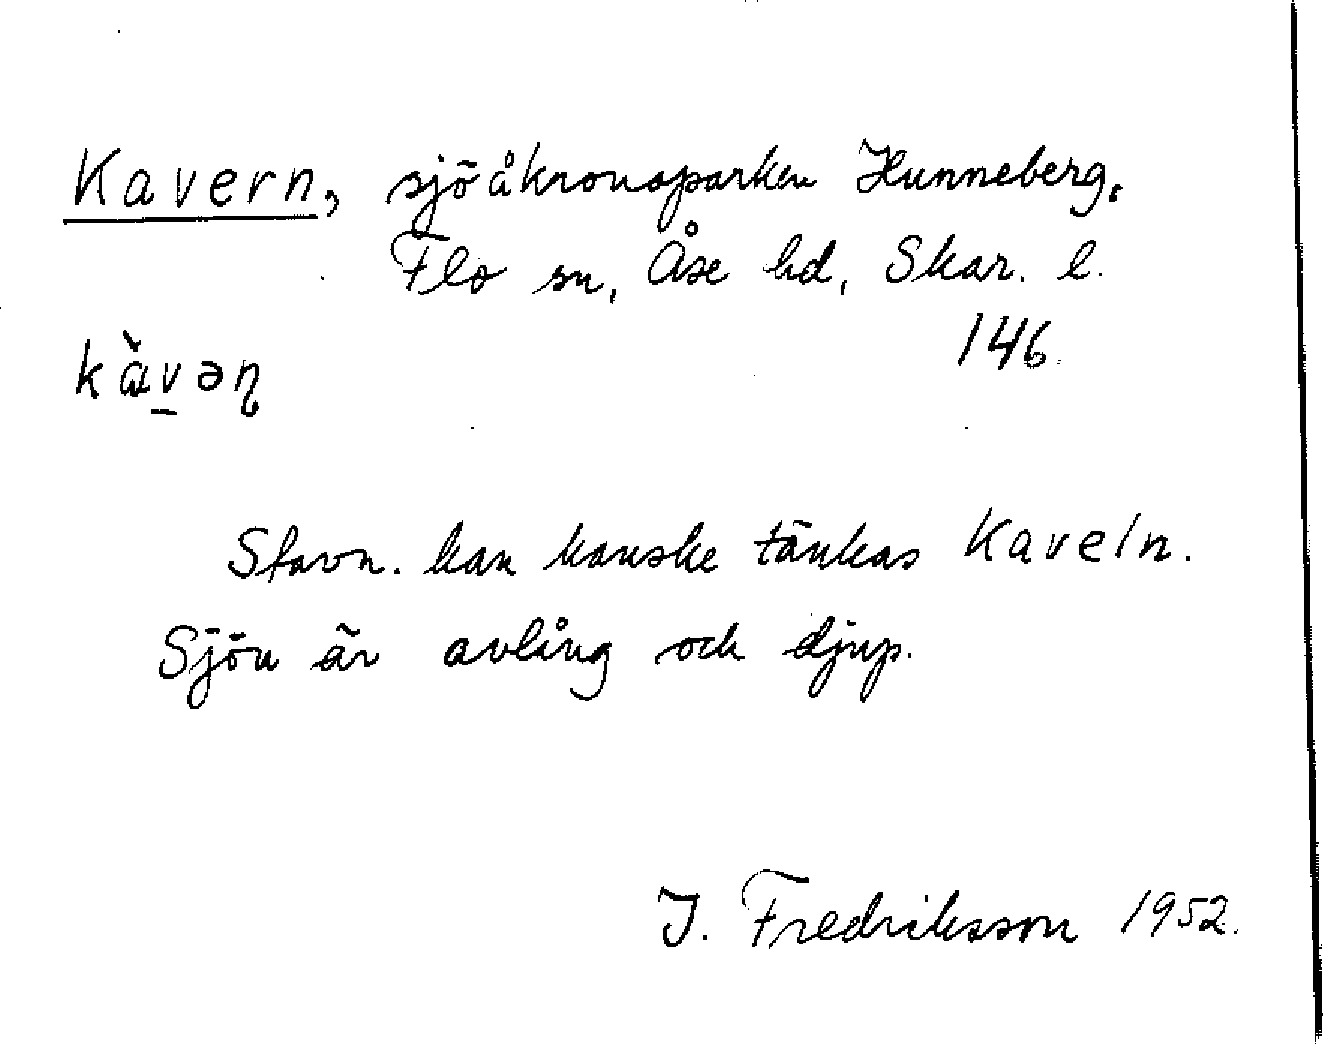 Kavern, sjö å kronoparken Hunneberg,
Flo sn, Åse hd, Skar. l.
146.
kàvəɳ
Stavn. kan kanske tänkas Kaveln.
Sjön är avlång och djup.
J. Fredriksson 1952.